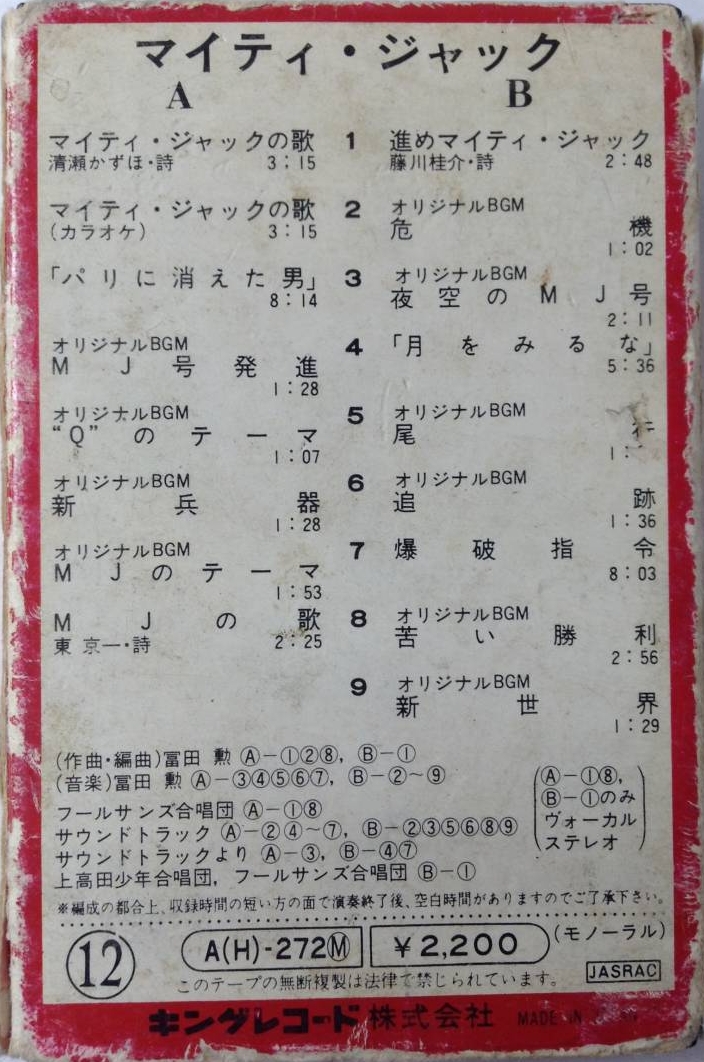 マイティ・ジャック
A
B
マイティ・ジャックの歌 1 進めマイティ・ジャック
清瀬かずほ・詩 3:15 藤川桂介・詩 2:48
マイティ・ジャックの歌 2 オリジナルBGM
(カラオケ) 3:15 危機
1:02
「パリに消えた男」 3 オリジナルBGM
8:14 夜空のMJ号
2:11
オリジナルBGM 4 「月をみるな」
MJ号発進 5:36
1:28
オリジナルBGM 5 オリジナルBGM
“Q”のテーマ 尾
1:07
オリジナルBGM 6 オリジナルBGM
新兵器 追跡
1:28 1:36
オリジナルBGM 7 爆破指令
MJのテーマ 8:03
1:53
MJの歌 8 オリジナルBGM
東京一・詩 2:25 苦い勝利
2:56
9 オリジナルBGM
新世界
1:29
(作曲・編曲)冨田 勲 Ⓐ-①②⑧, Ⓑ-①
(音楽)冨田 勲 Ⓐ-③④⑤⑥⑦, Ⓑ-②~⑨
フールサンズ合唱団 Ⓐ-①⑧
サウンドトラック Ⓐ-②④~⑦, Ⓑ-②③⑤⑥⑧⑨
サウンドトラックより Ⓐ-③, Ⓑ-④⑦
上高田少年合唱団, フールサンズ合唱団 Ⓑ-①
(Ⓐ-①⑧,
Ⓑ-①のみ
ヴォーカル
ステレオ)
※編成の都合上、収録時間の短い方の面で演奏終了後、空白時間がありますのでご了承下さい。
⑫ A(H)-272Ⓜ ¥2,200 (モノーラル)
このテープの無断複製は法律で禁じられています。 JASRAC
キングレコード株式会社 MADE IN